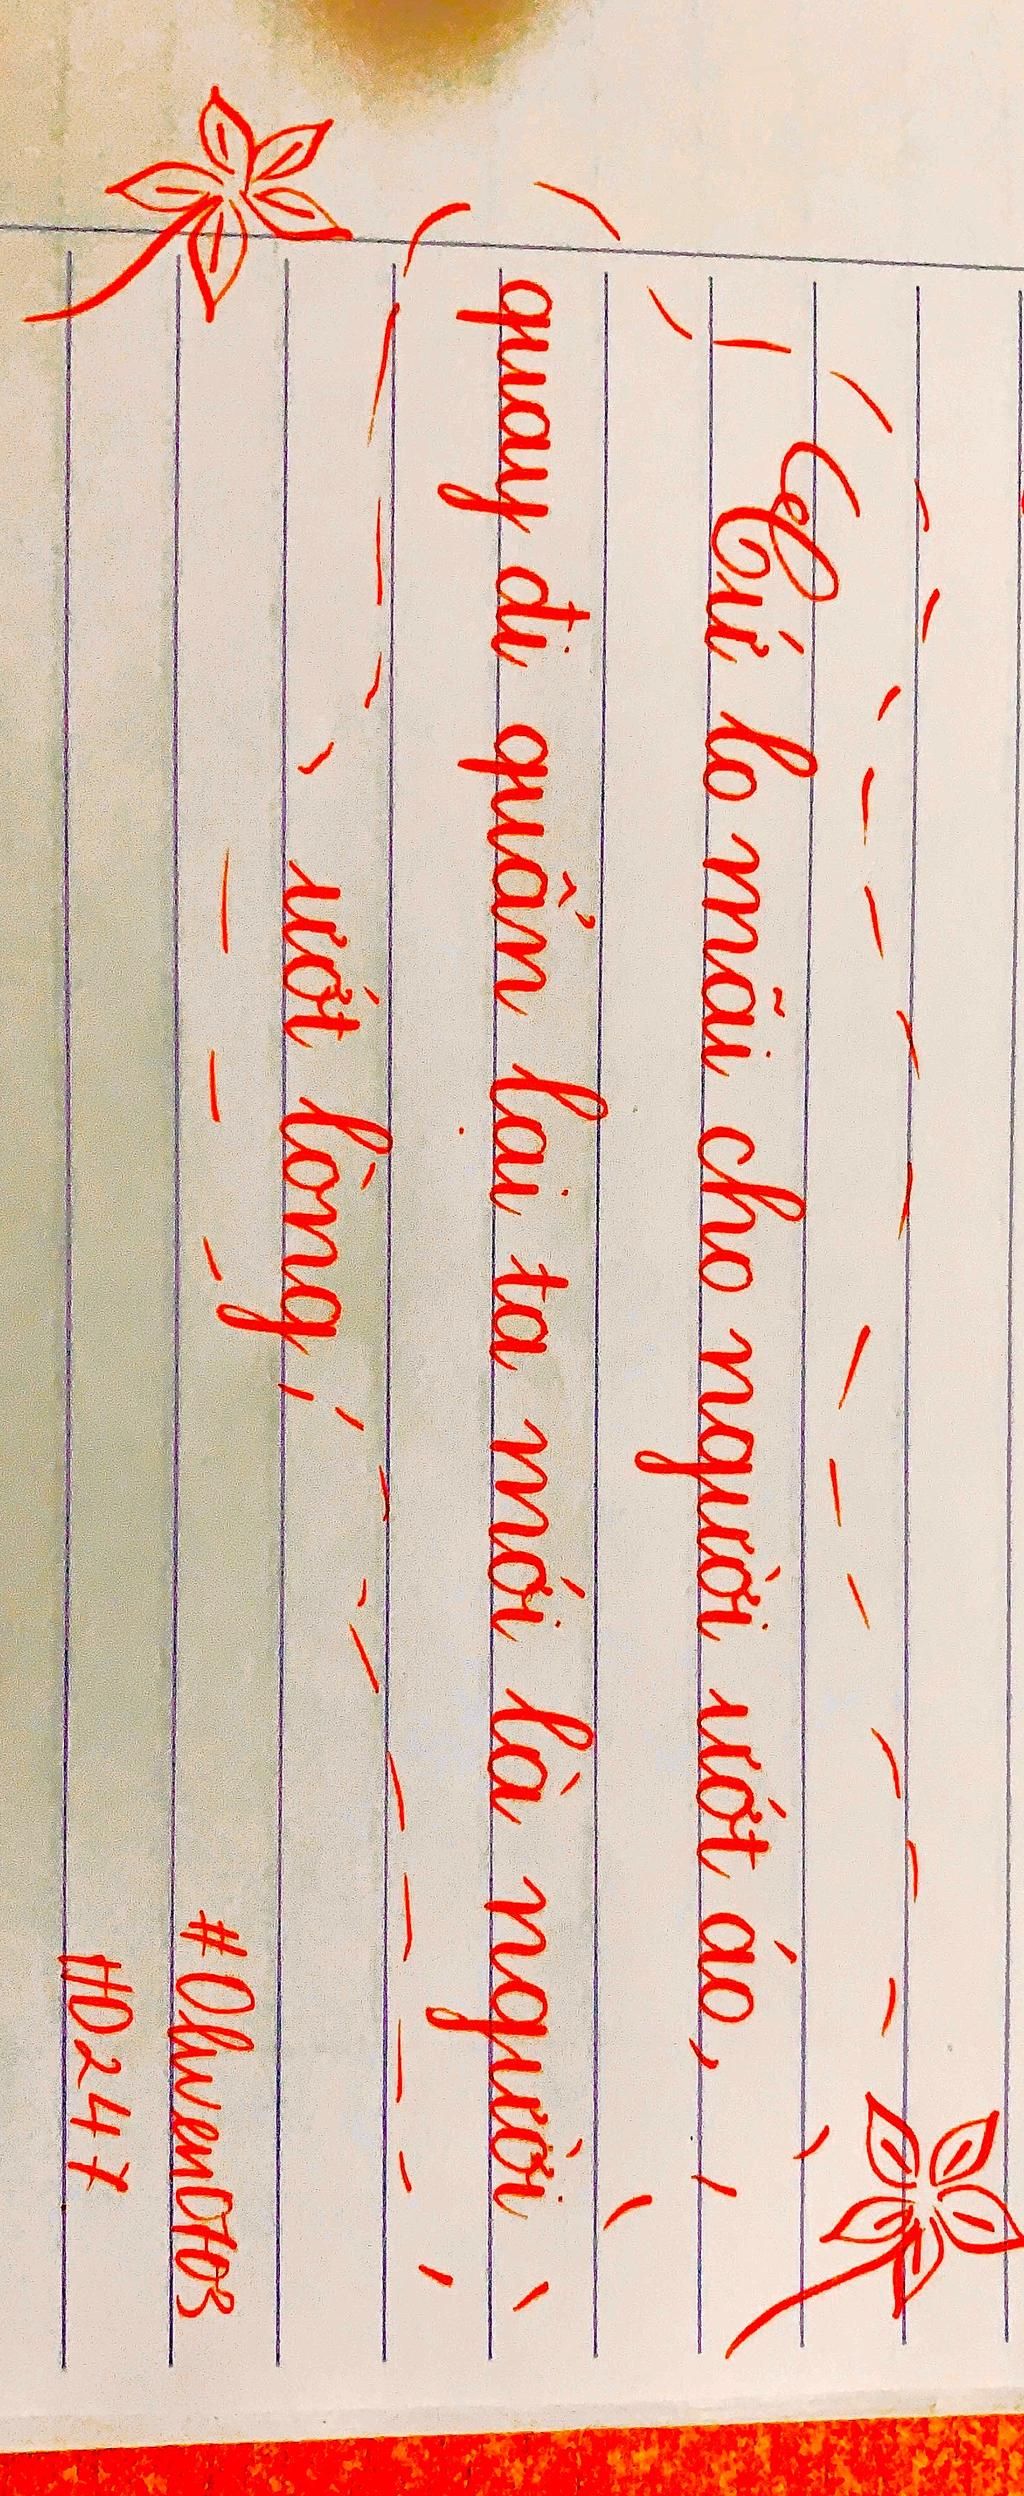 Cứ lo mãi cho người ướt áo,
quay đi quẩn lai ta mới là người
ướt lòng
#OhvenOtos
HD247